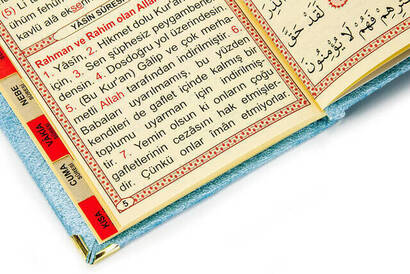 YÂSİN SÛRESİ
Rahman ve Rahim olan Allah
1. Yâsin. 2. Hikmet dolu Kur'an
3. Sen şüphesiz peygamberler
densin. 4. Dosdoğru yol üzerindesin.
5. (Bu Kur'an) Gâlip ve çok merha
metli Allah tarafından indirilmiştir. 6.
Babaları uyarılmamış, bu yüzden
kendileri de gaflet içinde kalmış bir
toplumu uyarman için indirilmiş-
tir. 7. Yemin olsun ki onların çoğu
gafletlerinin cezasını hak etmişler-
dir. Çünkü onlar îmân etmiyorlar.
5
NEBE
SÛRESİ
VAKIA
CUMA
SÛRESİ
KISA
لَا يُؤْمِنُونَ